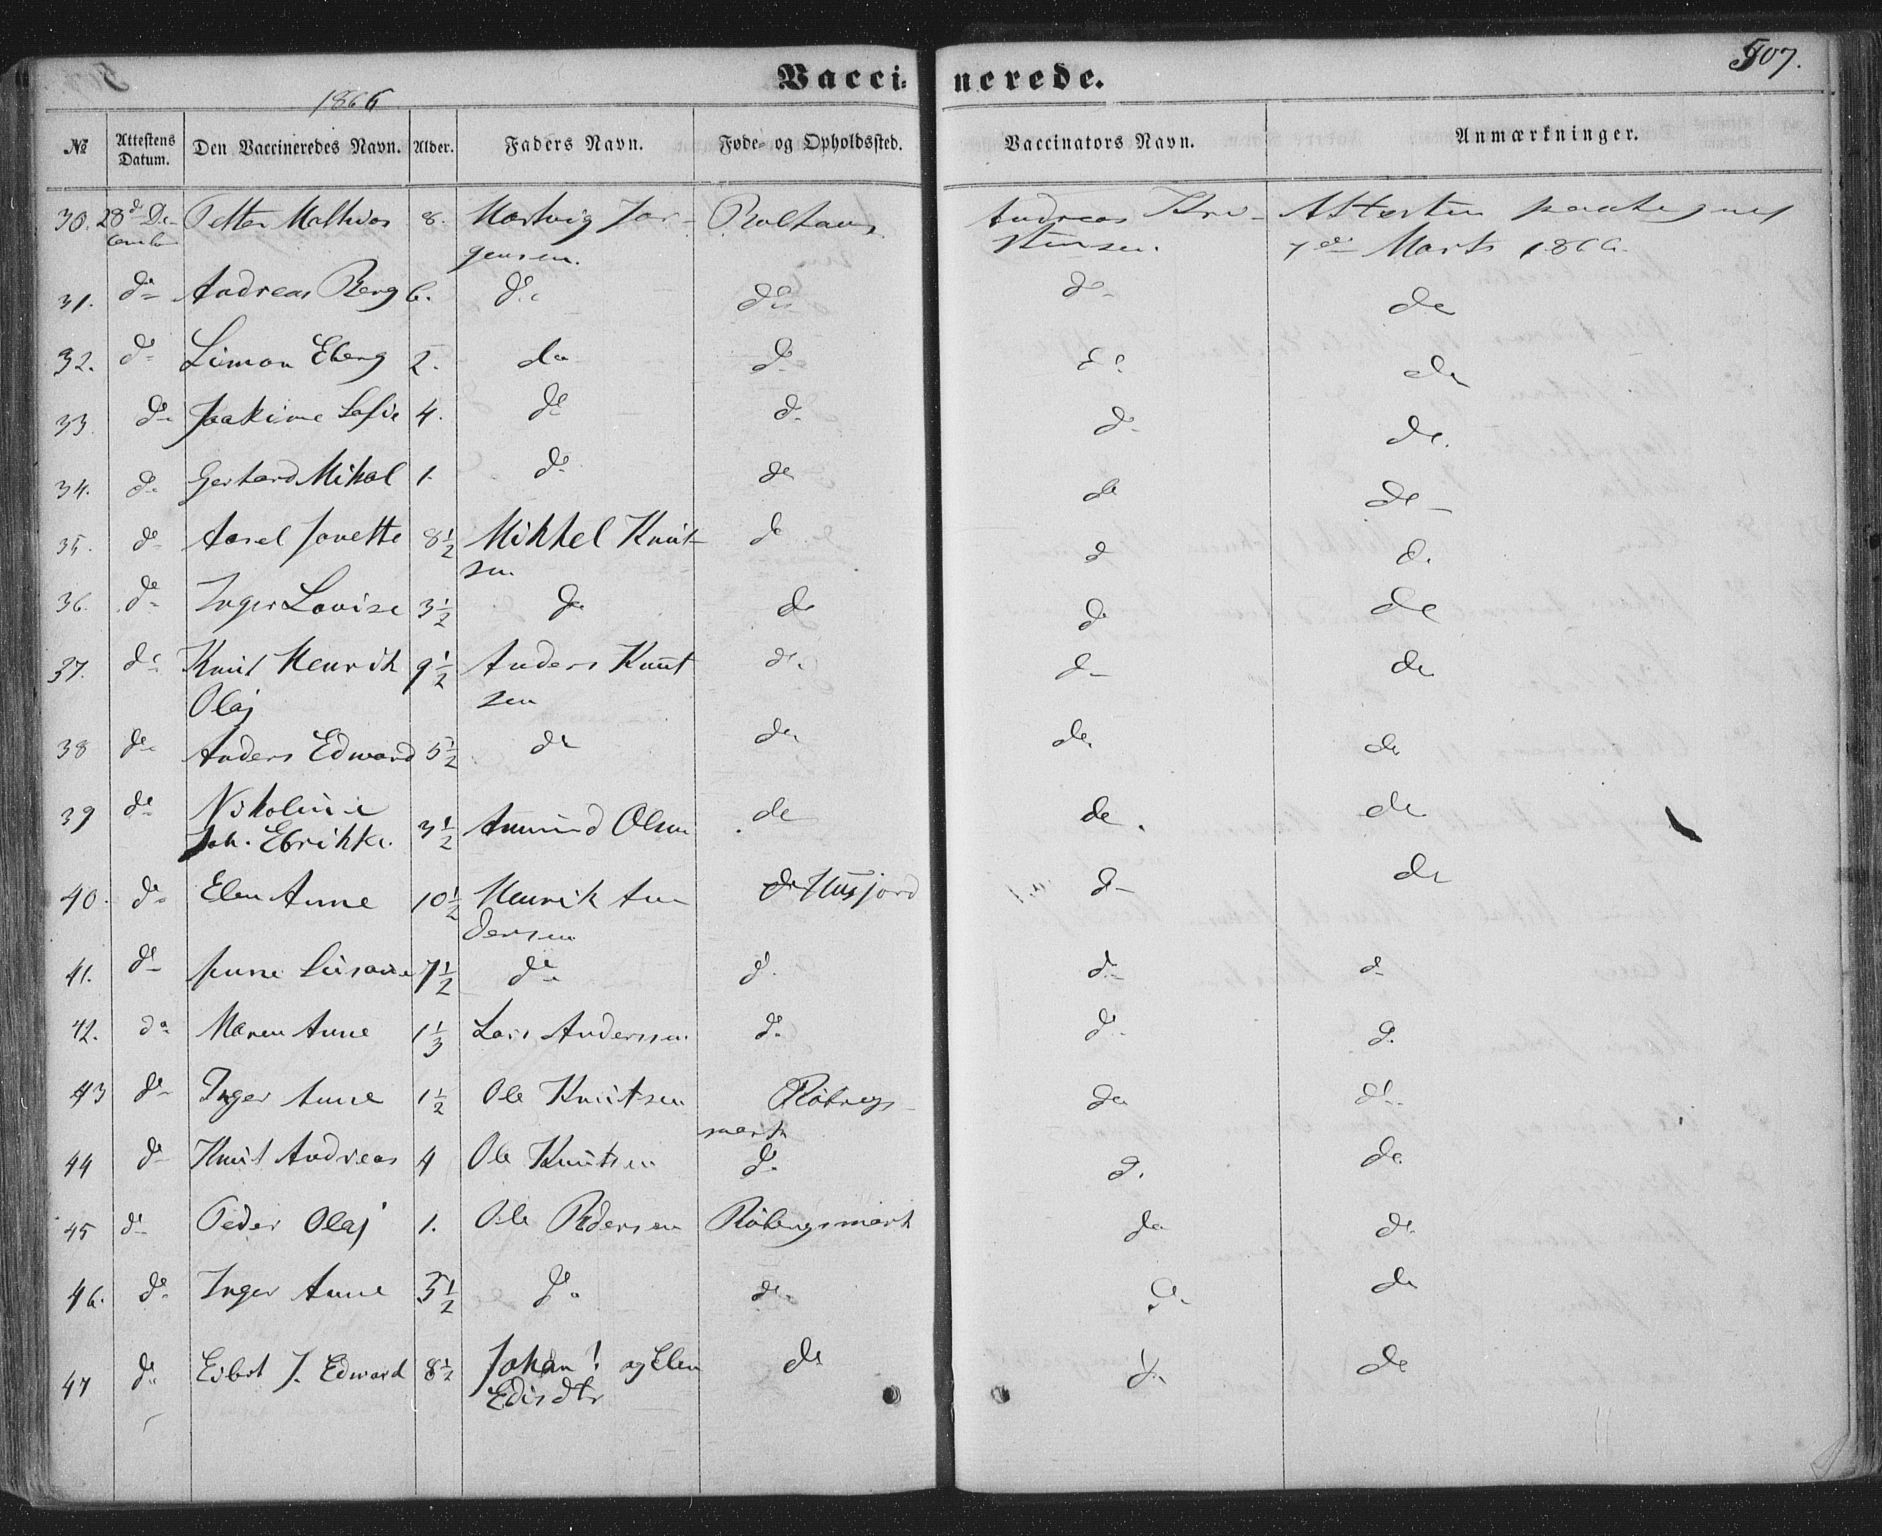 507.
Vaccinerede.
1866
№ Attestens Datum. Den Vaccineredes Navn. Alder. Faders Navn. Føde- og Opholdssted. Vaccinators Navn. Anmærkninger.
30. 28de De- Petter Mathias 8. Hartvig Jør- Andreas Kri- Attesten paategnet
cember gensen. stensen. 7de Marts 1866.
31. do Andreas Berg 6. do do do do
32. do Simon Eberg 2. do do do do
33. do Joakime Sofie 4. do do do do
34. do Gerhard Mikal 1. do do do do
35. do Aasel Janette 8½ Mikkel Knut- do do do
sen
36. do Inger Lovise 3½ do do do do
37. do Knut Henrik 9½ Anders Knut do do do
Olaj sen
38 do Anders Edward 5½ do do do do
39 do Nikoline
Joh. Ebrikke. 3½ Amund Olsen do do do
40. do Elen Anne 10½ Henrik An do Husjord do do
dersen
41. do Anne Susanne 7½ do do do do
42. do Maren Anne 1⅓ Lars Anderssen do do do
43 do Inger Anne 1½ Ole Knutsen Røbergs- do do
mark
44 do Knut Andreas 4 Ole Knutsen do do do
45 do Peder Olaj 1. Ole Pedersen Røbergsmark do do
46. do Inger Anne 3½ do do do do
47 do Eibert J. Edward 8½ Johan I. og Elen do do do
Edisdtr